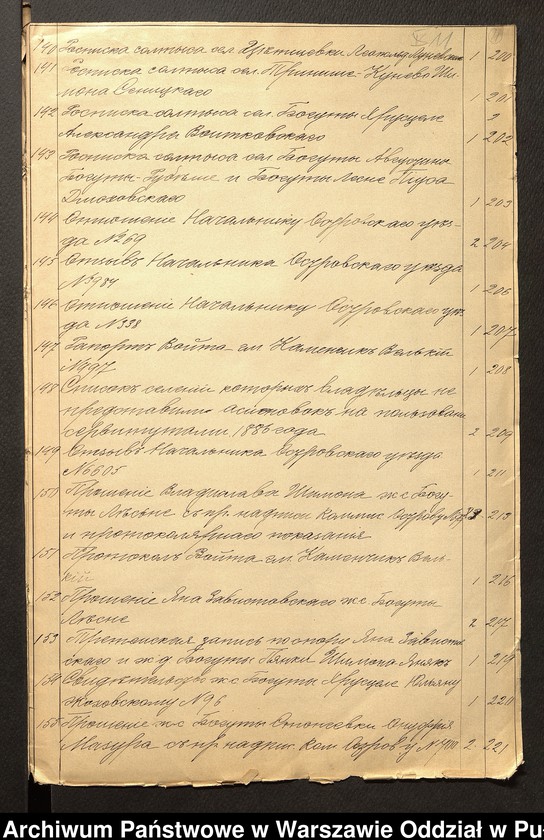 140 Росписка солтыса сел. 1 200
141 Росписка солтыса сел. Пришише-Кунево Ши-
мона Сеницкаго 1 201
142 Росписка солтыса сел. Богуты Ярусцеле 2
Александра Витковскаго 1 202
143 Росписка солтыса сел. Богуты Августинки
Богуты-Рубеше и Богуты Лесне
Дмоховскаго 1 203
144 Отношеніе Начальнику Островскаго уѣз-
да №269 2 204
145 Отзывъ Начальника Островскаго уѣзда
№984 1 206
146 Отношеніе Начальнику Островскаго уѣз
да №338 1 207
147 Рапортъ Войта гм. Каменчикъ Велькій
№997 1 208
148 Списокъ селеній которыхъ владѣльцы не
представили на пользованіе
сервитутами 1886 года 2 209
149 Отзывъ Начальника Островскаго уѣзда
№6605 1 211
150 Прошеніе Владислава Шимона ж с Богу-
ты Лѣсне съ пр. надписи Коммис. Острову
и протоколярнаго показанія 213
151 Протоколъ Войта гм. Каменчикъ Вель-
кій 1 216
152 Прошеніе Яна Завистовскаго ж с Богуты
Лѣсне 2 217
153 запись по спору Яна Завистов
скаго и ж д Богуты Пянки Шимона 1 219
154 Свидѣтельство ж с Богуты Ярусцеле Юльяну
Жоховскому №96 1 220
155 Прошеніе ж с Богуты Онуфрія
Мазура съ пр. надп. Ком. Острову 2 221
Archiwum Państwowe w Warszawie Oddział w Pu